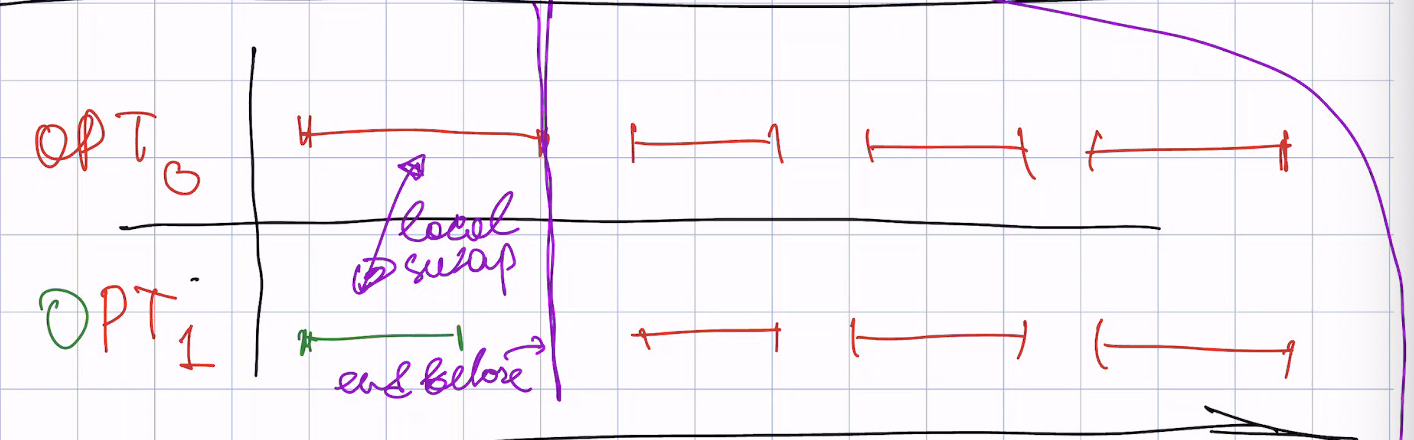 OPT0
local
swap
OPT1
end before